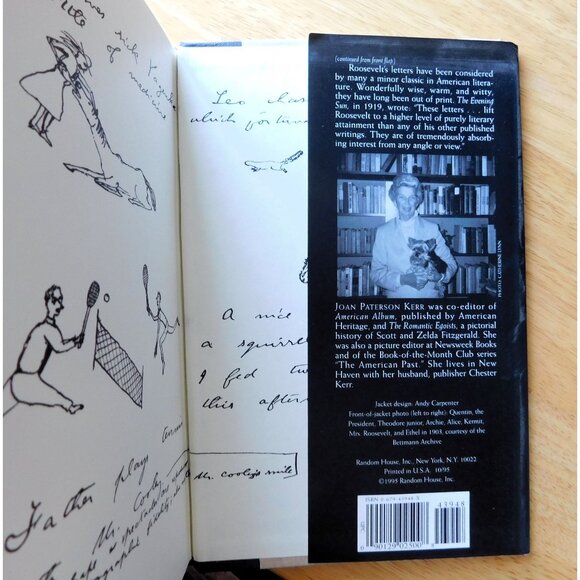 of medicine
Father plays tennis
Mr. Cooley
Leo chas
which fortuna
A nice
a squirrel
I fed tw
this after
Mr Cooley's smile
(continued from front flap)
Roosevelt's letters have been considered
by many a minor classic in American litera-
ture. Wonderfully wise, warm, and witty,
they have long been out of print. The Evening
Sun, in 1919, wrote: "These letters . . . lift
Roosevelt to a higher level of purely literary
attainment than any of his other published
writings. They are of tremendously absorb-
ing interest from any angle or view."
PHOTO: CATHERINE LYNN
JOAN PATERSON KERR was co-editor of
American Album, published by American
Heritage, and The Romantic Egoists, a pictorial
history of Scott and Zelda Fitzgerald. She
was also a picture editor at Newsweek Books
and of the Book-of-the-Month Club series
"The American Past." She lives in New
Haven with her husband, publisher Chester
Kerr.
Jacket design: Andy Carpenter
Front-of-jacket photo (left to right): Quentin, the
President, Theodore junior, Archie, Alice, Kermit,
Mrs. Roosevelt, and Ethel in 1903, courtesy of the
Bettmann Archive
Random House, Inc., New York, N.Y. 10022
Printed in U.S.A. 10/95
©1995 Random House, Inc.
ISBN 0-679-43948-X
43948
0 90129 02500 8